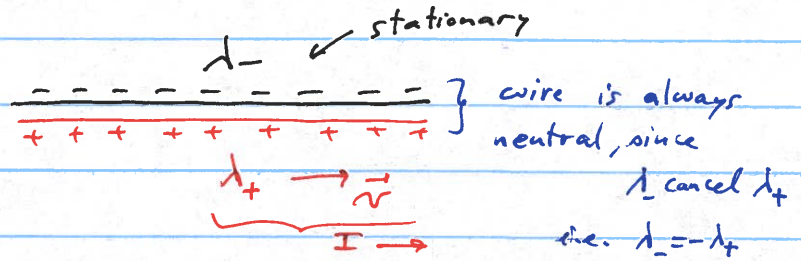 stationary
λ₋
− − − − − − − − −
wire is always
+ + + + + + + + +
neutral, since
λ₊ → v⃗
λ₋ cancel λ₊
I →
i.e. λ₋ = -λ₊